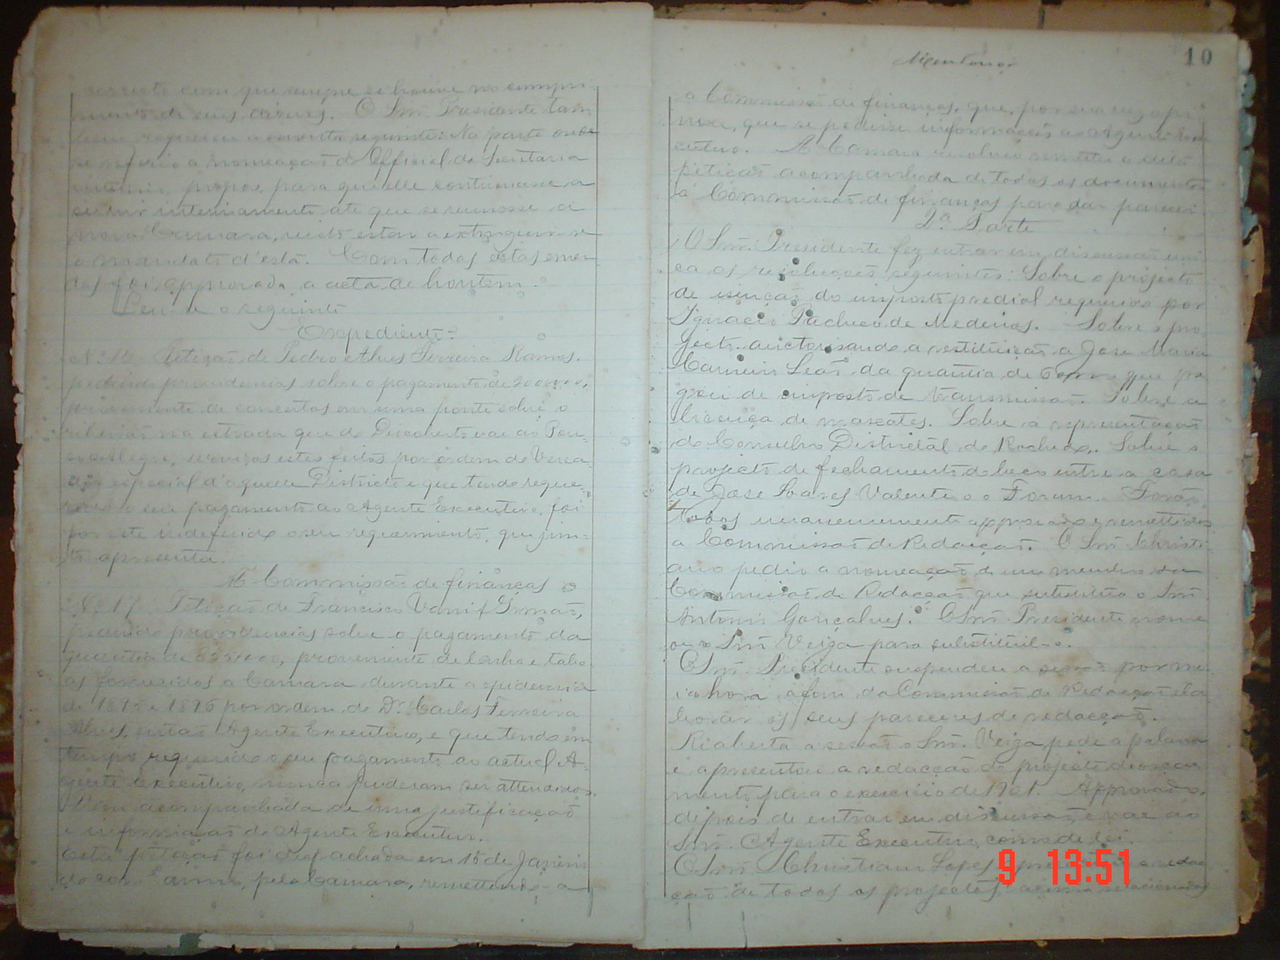 correcto com que sempre se houve no cumpri
mento de seus deveres. O Snr. Presidente tam
bem requereu a emenda seguinte: Na parte onde
se referio a nomeação do Official da Secretaria
interino, propos, para que elle continuasse a
servir interinamente até que se reunisse a
nova Camara, visto estar a extinguir-se
o mandato d'esta. Com todas estas emen
das foi approvada a acta de hontem.
Leu-se o seguinte
Expediente:
Nº 16 Petição de Pedro Alves Ferreira Ramos,
pedindo providencias sobre o pagamento de
proveniente de concertos em uma ponte sobre o
ribeirão na estrada que do Descoberto vae ao Pou
so Alegre, serviços estes feitos por ordem do Verea
dor especial d'aquelle Districto e que tendo reque
rido o seu pagamento ao Agente Executivo, foi
por este indeferido o seu requerimento, que jun
to apresenta.
Á Commissão de finanças
Nº 17 Petição de Francisco Irmão,
pedindo providencias sobre o pagamento da
quantia de proveniente de lenha e tabo
as fornecidas a Camara durante a epidemia
de 1895 e 1896 por ordem do Dr. Carlos Ferreira
Alves, então Agente Executivo, e que tendo em
tempo requerido o seu pagamento ao actual A
gente Executivo, nunca puderam ser attendidos.
Vem acompanhada de uma justificação
e informação do Agente Executivo.
Esta petição foi despachada em 15 de Janeiro
do anno, pela Camara, remettendo-a
10
a Commissão de finanças, que, por sua vez opi
nou, que se pedisse informação ao Agente Exe
cutivo. A Camara resolveu remetter a dita
petição acompanhada de todos os documentos
á Commissão de finanças para dar parecer.
2ª Parte
O Snr. Presidente fez entrar em discussão uni
ca as resoluções seguintes: Sobre o projecto
de isenção do imposto predial requerido por
Ignacio Pacheco de Medeiros. Sobre o pro
jecto auctorisando a restituição a Jose Maria
Carneiro Leão da quantia de que pa
gou de imposto de transmissão. Sobre a
licença de mascates. Sobre a representação
do Conselho Districtal do Rochedo. Sobre o
projecto de fechamento do beco entre a casa
de Jose Soares Valente e o Forum. Forão
todos unanimemente approvados e remettidos
a Commissão de Redacção. O Snr. Christi
ano pedio a nomeação de um membro da
Commissão de Redacção que substitua o Snr
Antonio Gonçalves. O Snr. Presidente nome
ou o Snr. Veiga para substituil-o.
O Snr. Presidente suspendeu a sessão por me
ia hora afim da Commissão de Redacção ela
borar os seus pareceres de redacção.
Reaberta a sessão o Snr. Veiga pede a palavra
e apresentou a redacção do projecto de orça
mento para o exercicio de 1901. Approvado,
depois de entrar em discussão e vae ao
Snr. Agente Executivo como de lei.
O Snr. Christiano Lopes a redac
ção de todos os projectos acima relacionados
9 13:51